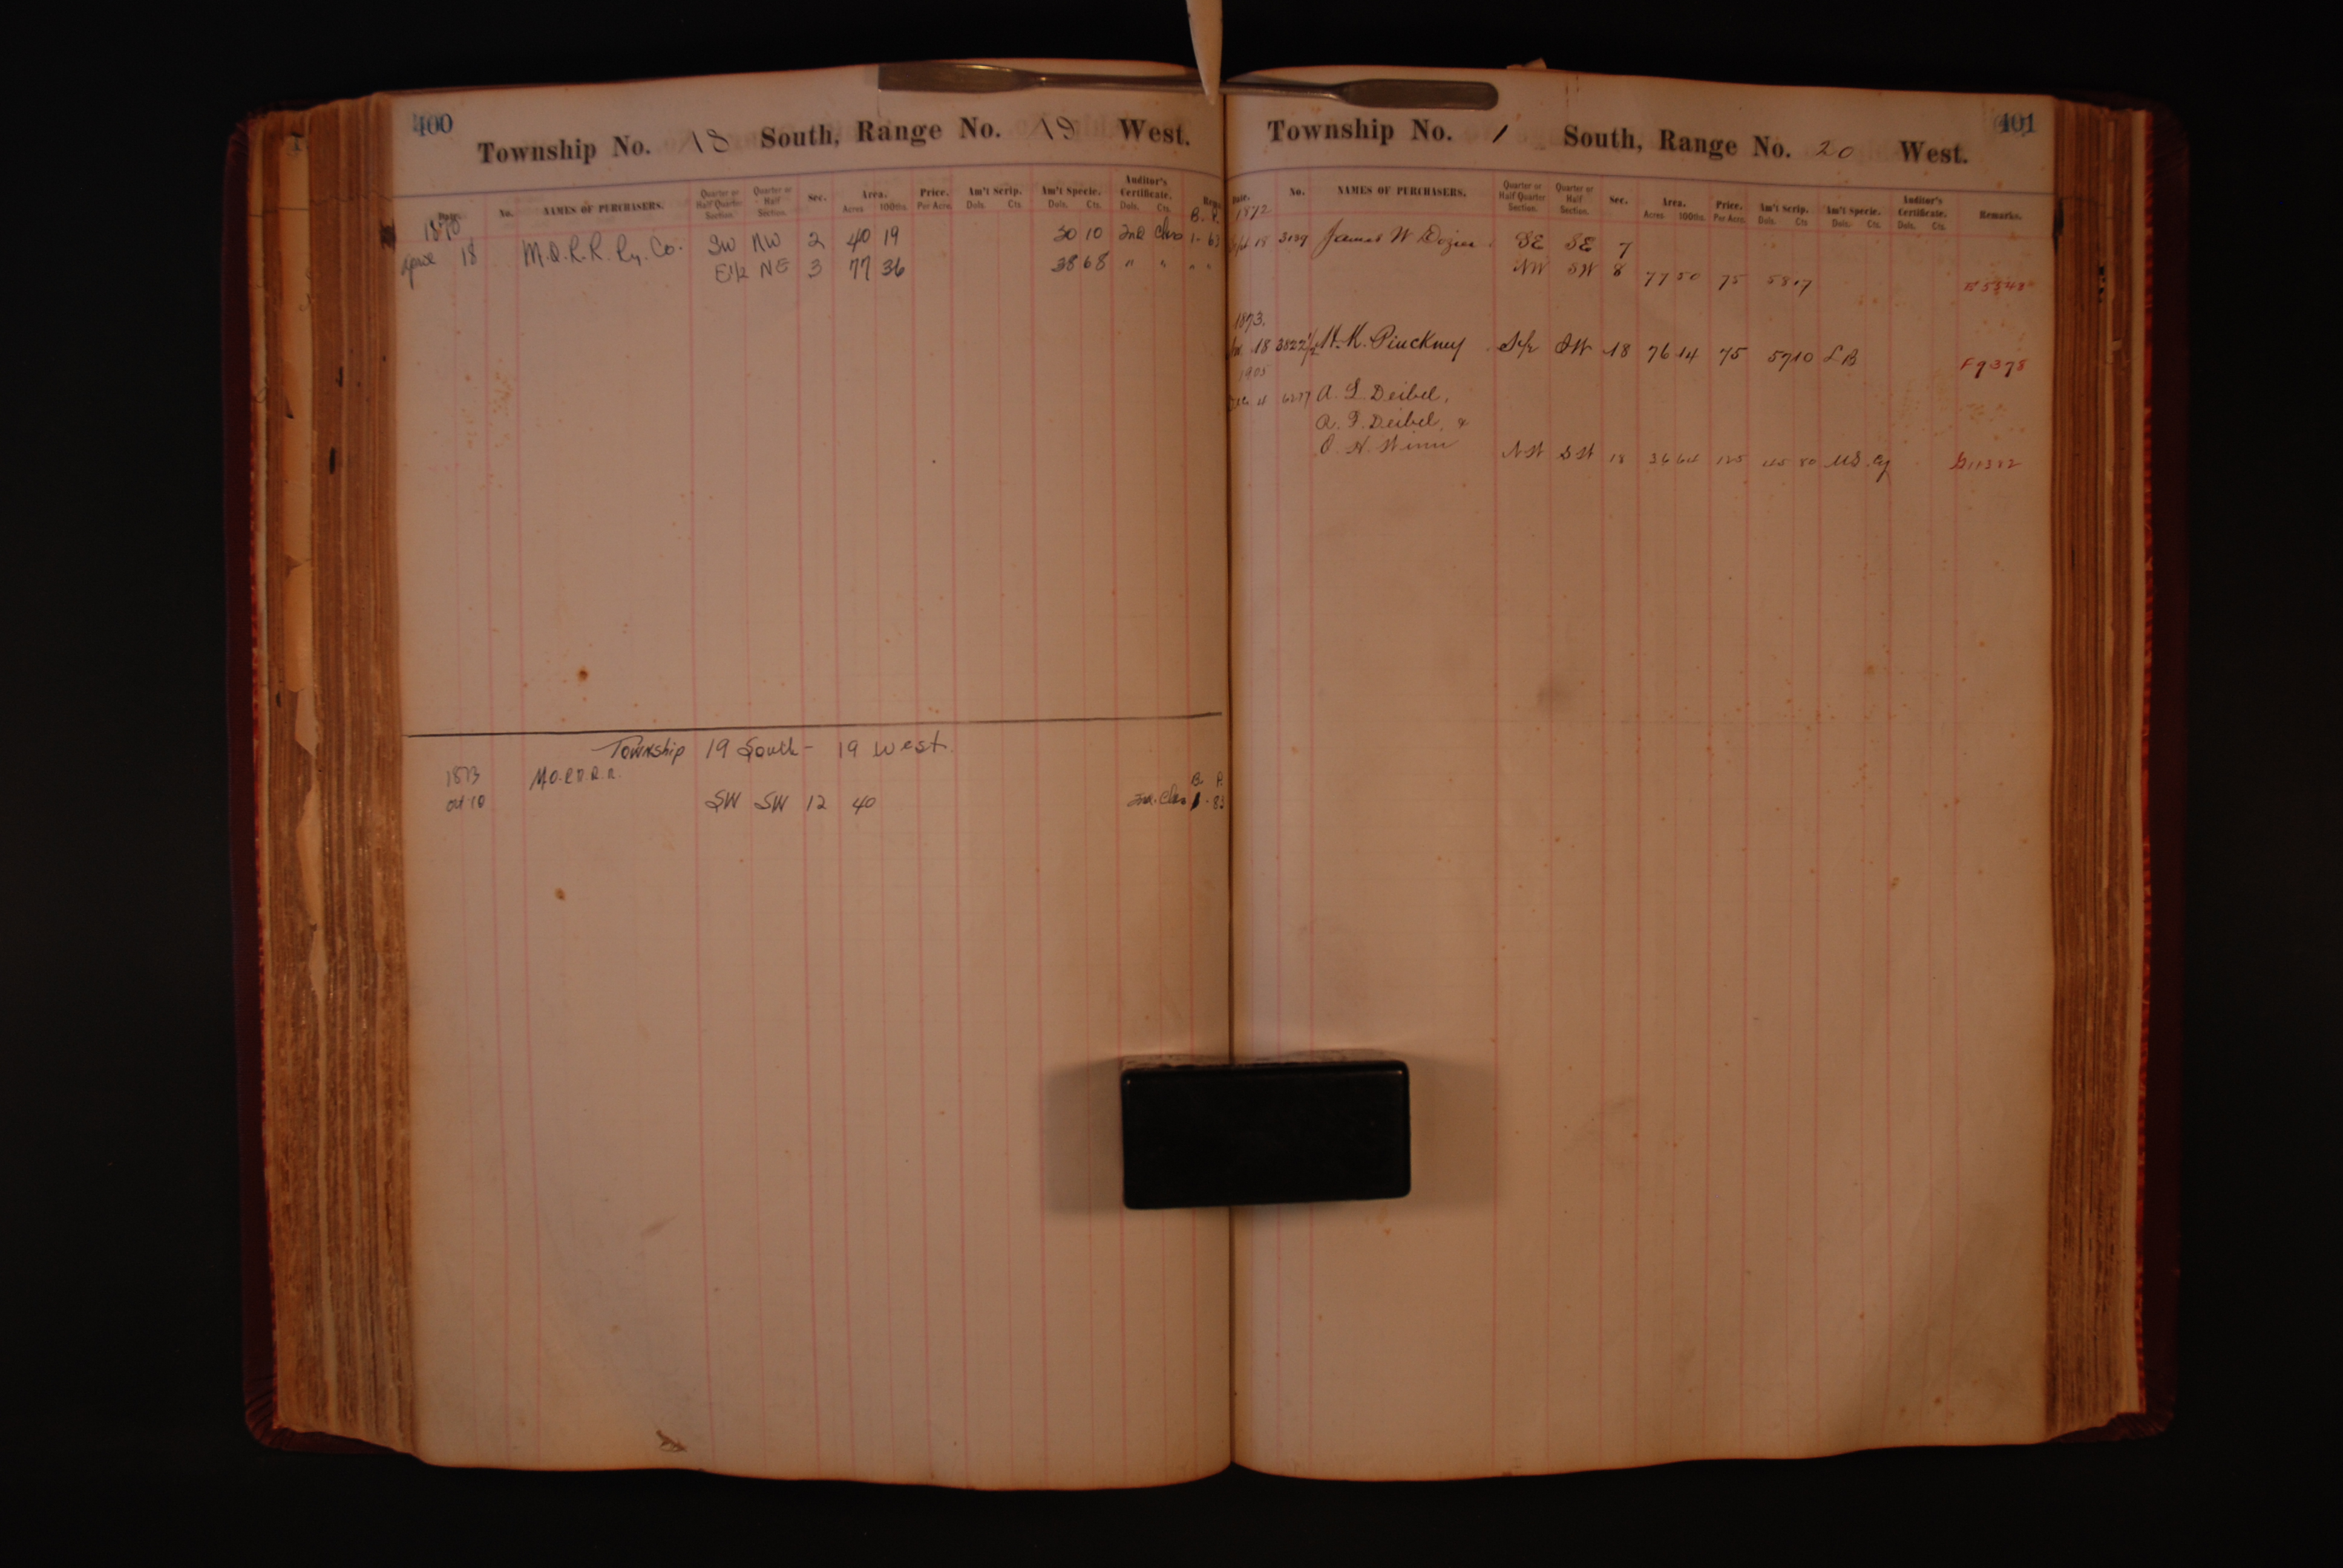 400
Township No. 18 South, Range No. 19 West.
Date. No. NAMES OF PURCHASERS. Quarter or Half Quarter Section. Quarter or Half Section. Sec. Area. Acres 100ths. Price. Per Acre. Am't Scrip. Dols. Cts. Am't Specie. Dols. Cts. Auditor's Certificate. Dols. Cts.
1870 B. P.
18 M.O.R.R. Ry. Co. SW NW 2 40 19 30 10 2nd Clss 1-63
E1/2 NE 3 77 36 38 68 " " " "
Township 19 South - 19 West
1873 M.O.R.R.R. B. P.
Oct 10 SW SW 12 40 Clss 1-83
401
Township No. 1 South, Range No. 20 West.
Date. No. NAMES OF PURCHASERS. Quarter or Half Quarter Section. Quarter or Half Section. Sec. Area. Acres 100ths. Price. Per Acre. Am't Scrip. Dols. Cts Am't Specie. Dols. Cts. Auditor's Certificate. Dols. Cts. Remarks.
1872
Sept 18 3189 James W Dozier SE SE 7
NW SW 8 77 50 75 58.17 E 5548
1873.
18 3822 1/2 H. K. Pinckney S1/2 SW 18 76 14 75 57 10 L B F 9378
1905
Dec 11 6277 A. L. Deibel,
A. F. Deibel, &
O. H. Winn NW SW 18 36 64 125 45 80 US. Cy G 11382